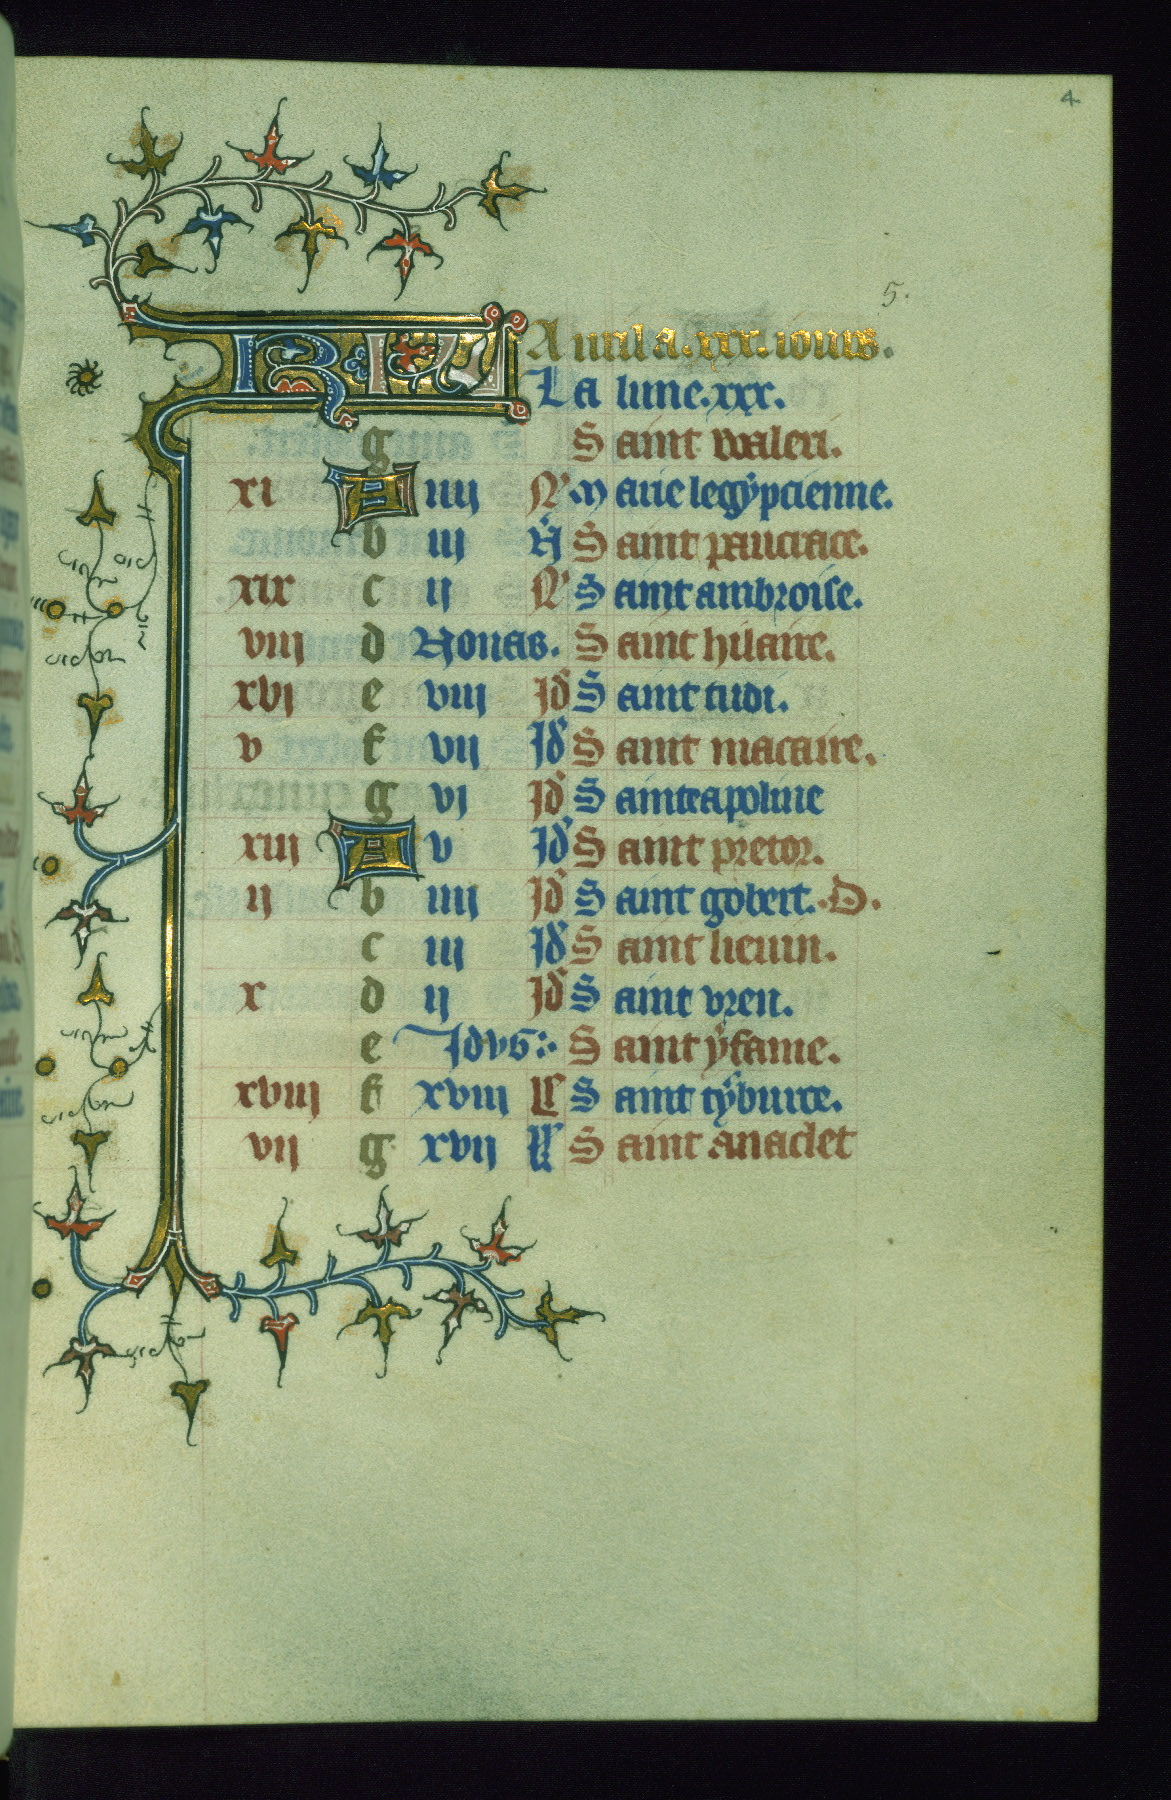 4
5.
KL Auril a .xxx. iours.
La lune .xxx.
g Saint waleri.
xi A iiij N' M arie legypcienne.
b iij N' Saint pancrace.
xix c ij N' Saint ambroise.
viij d Nonas. Saint hilaire.
xvj e viij Jd' Saint tudi.
v f vij Jd' Saint macaire.
g vj Jd' Sainte apoline
xiij A v Jd' Saint pretor.
ij b iiij Jd' Saint gobert. .D.
c iij Jd' Saint lieuin.
x d ij Jd' Saint vren.
e Jdus Saint yfame.
xviij f xviij kl' Saint tyburce.
vij g xvij kl' Saint anaclet